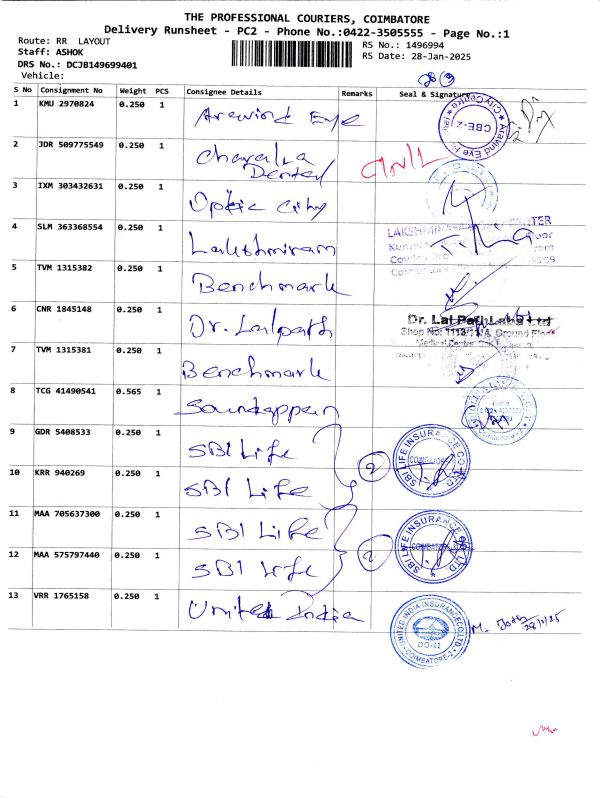 THE PROFESSIONAL COURIERS, COIMBATORE
Delivery Runsheet - PC2 - Phone No.:0422-3505555 - Page No.:1
Route: RR LAYOUT
RS No.: 1496994
Staff: ASHOK
RS Date: 28-Jan-2025
DRS No.: DCJB149699401
Vehicle:
S No Consignment No Weight PCS Consignee Details Remarks Seal & Signature
1 KMU 2970824 0.250 1 Aravind Eye
CBE-2
2 JDR 509775549 0.250 1 Dental
3 IXM 303432631 0.250 1 Optic City
4 SLM 363368554 0.250 1 Lakshmiram
5 TVM 1315382 0.250 1 Benchmark
6 CNR 1845148 0.250 1 Dr. Lalpath
Dr. Lal PathLabs Ltd
7 TVM 1315381 0.250 1 Benchmark
8 TCG 41490541 0.565 1
9 GDR 5408533 0.250 1 SBI Life
SBI LIFE INSURANCE CO LTD
COIMBATORE
10 KRR 940269 0.250 1 SBI Life
2
11 MAA 705637300 0.250 1 SBI Life
SBI LIFE INSURANCE CO LTD
COIMBATORE
12 MAA 575797440 0.250 1 SBI Life
2
13 VRR 1765158 0.250 1 United India
UNITED INDIA INSURANCE CO. LTD.
DO-II
COIMBATORE-2
28/1/25